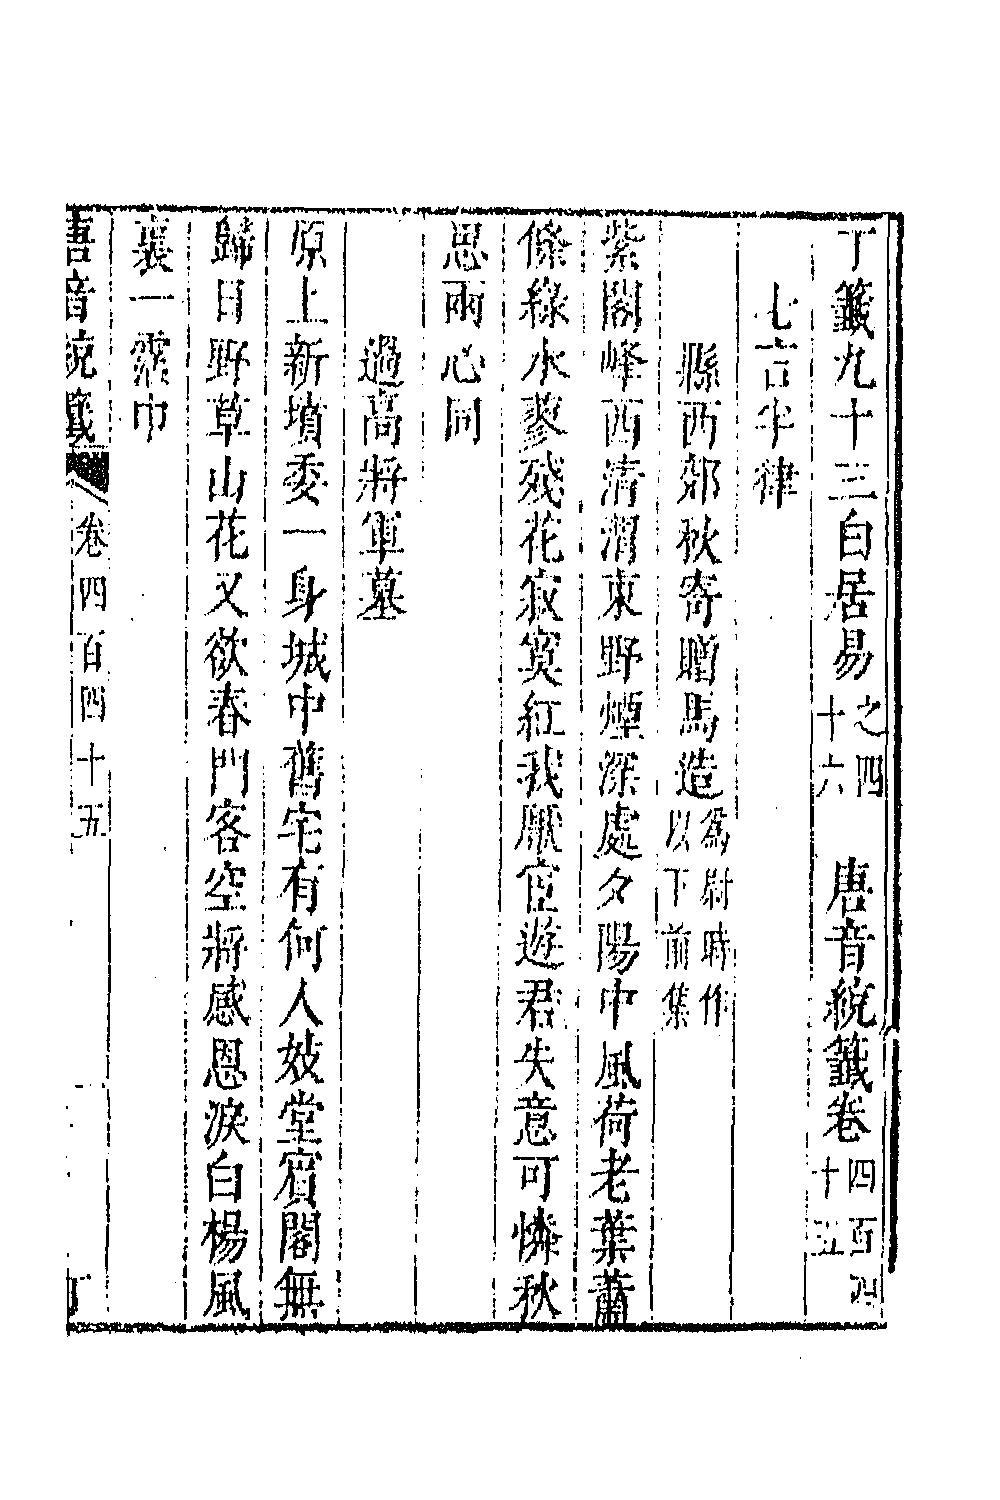 丁籖九十三白居易之四十六　唐音統籖卷四百四十五
七言半律
縣西郊秋寄贈馬造為尉時作以下前集
紫閣峰西清渭東野煙深處夕陽中風荷老葉蕭
條綠水蓼殘花寂寞紅我厭宦遊君失意可憐秋
思兩心同
過高將軍墓
原上新墳委一身城中舊宅有何人妓堂賓閣無
歸日野草山花又欲春門客空將感恩淚白楊風
裏一霑巾
唐音統籖　卷四百四十五　丁